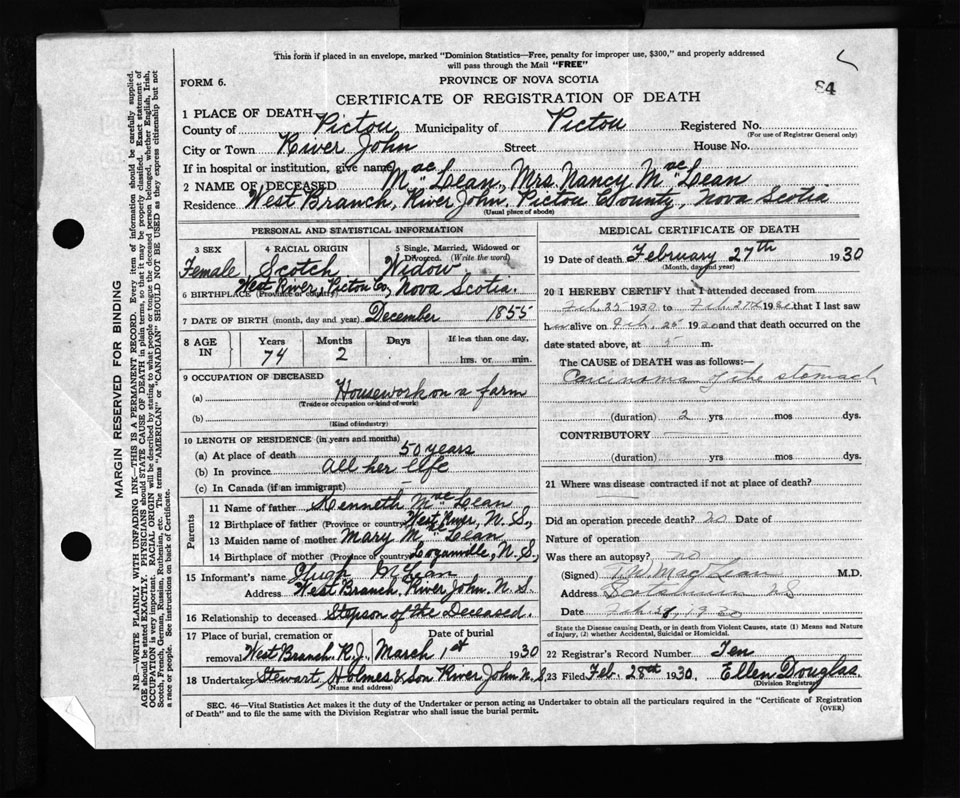 This form if placed in an envelope, marked "Dominion Statistics—Free, penalty for improper use, $300," and properly addressed
will pass through the Mail "FREE"
FORM 6.
PROVINCE OF NOVA SCOTIA
84
CERTIFICATE OF REGISTRATION OF DEATH
1 PLACE OF DEATH
County of Pictou Municipality of Pictou Registered No.
(For use of Registrar General only)
City or Town River John Street House No.
If in hospital or institution, give name
2 NAME OF DECEASED MacLean, Mrs. Nancy MacLean
Residence West Branch, River John, Pictou County, Nova Scotia
(Usual place of abode)
PERSONAL AND STATISTICAL INFORMATION
3 SEX 4 RACIAL ORIGIN 5 Single, Married, Widowed or Divorced. (Write the word)
Female Scotch Widow
6 BIRTHPLACE (Province or country) West River, Pictou Co., Nova Scotia.
7 DATE OF BIRTH (month, day and year) December 1855
8 AGE IN Years Months Days If less than one day,
74 2 hrs. or min.
9 OCCUPATION OF DECEASED
(a) Housework on a farm
(Trade or occupation or kind of work)
(b)
(Kind of industry)
10 LENGTH OF RESIDENCE (in years and months)
(a) At place of death 50 years
(b) In province All her life
(c) In Canada (if an immigrant)
Parents
11 Name of father Kenneth MacLean
12 Birthplace of father (Province or country) West River, N. S.,
13 Maiden name of mother Mary MacLean
14 Birthplace of mother (Province or country) Loganville, N. S.,
15 Informant's name Hugh McLean
Address West Branch, River John. N. S.
16 Relationship to deceased Stepson of the Deceased.
17 Place of burial, cremation or removal West Branch. R. J., Date of burial March 1st 1930
18 Undertaker Stewart, Holmes & Son River John N. S.
(Name and address)
MEDICAL CERTIFICATE OF DEATH
19 Date of death February 27th 1930
(Month, day and year)
20 I HEREBY CERTIFY that I attended deceased from
Feb. 25 1930 to Feb. 27th 1930 that I last saw
her alive on Feb. 25 1930 and that death occurred on the
date stated above, at 5 m.
The CAUSE of DEATH was as follows:—
Carcinoma of the stomach
(duration) 2 yrs mos dys.
CONTRIBUTORY
(duration) yrs mos dys.
21 Where was disease contracted if not at place of death?
Did an operation precede death? no Date of
Nature of operation
Was there an autopsy? no
(Signed) MacLean M.D.
Address Scotsburn N S
Date Feb. 28, 1930
State the Disease causing Death, or in death from Violent Causes, state (1) Means and Nature
of Injury, (2) whether Accidental, Suicidal or Homicidal.
22 Registrar's Record Number Ten
23 Filed Feb. 28th 1930, Ellen Douglas
(Division Registrar)
SEC. 46—Vital Statistics Act makes it the duty of the Undertaker or person acting as Undertaker to obtain all the particulars required in the "Certificate of Registration
of Death" and to file the same with the Division Registrar who shall issue the burial permit.
(OVER)
MARGIN RESERVED FOR BINDING
N.B.—WRITE PLAINLY WITH UNFADING INK—THIS IS A PERMANENT RECORD. Every item of information should be carefully supplied.
AGE should be stated EXACTLY. PHYSICIANS should STATE CAUSE OF DEATH in plain terms, so that it may be properly classified. Exact statement of
OCCUPATION is very important. RACIAL ORIGIN will be described by stating to what people or tongue the deceased person belonged, whether English, Irish,
Scotch, French, German, Russian, Ruthenian, etc. The terms "AMERICAN" or "CANADIAN" SHOULD NOT BE USED as they express citizenship but not
a race or people. See instructions on back of Certificate.